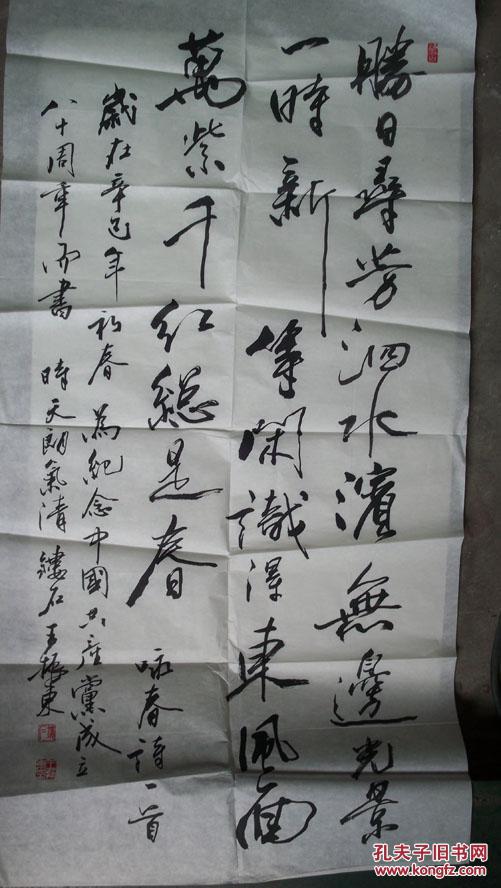 勝日尋芳泗水濱無邊光景
一時新等閑識得東風面
萬紫千紅總是春
咏春詩一首
歲在辛巳年初春為紀念中國共產黨成立
八十周年而書 時天朗氣清 鏤石王振東
孔夫子旧书网
kongfz.com